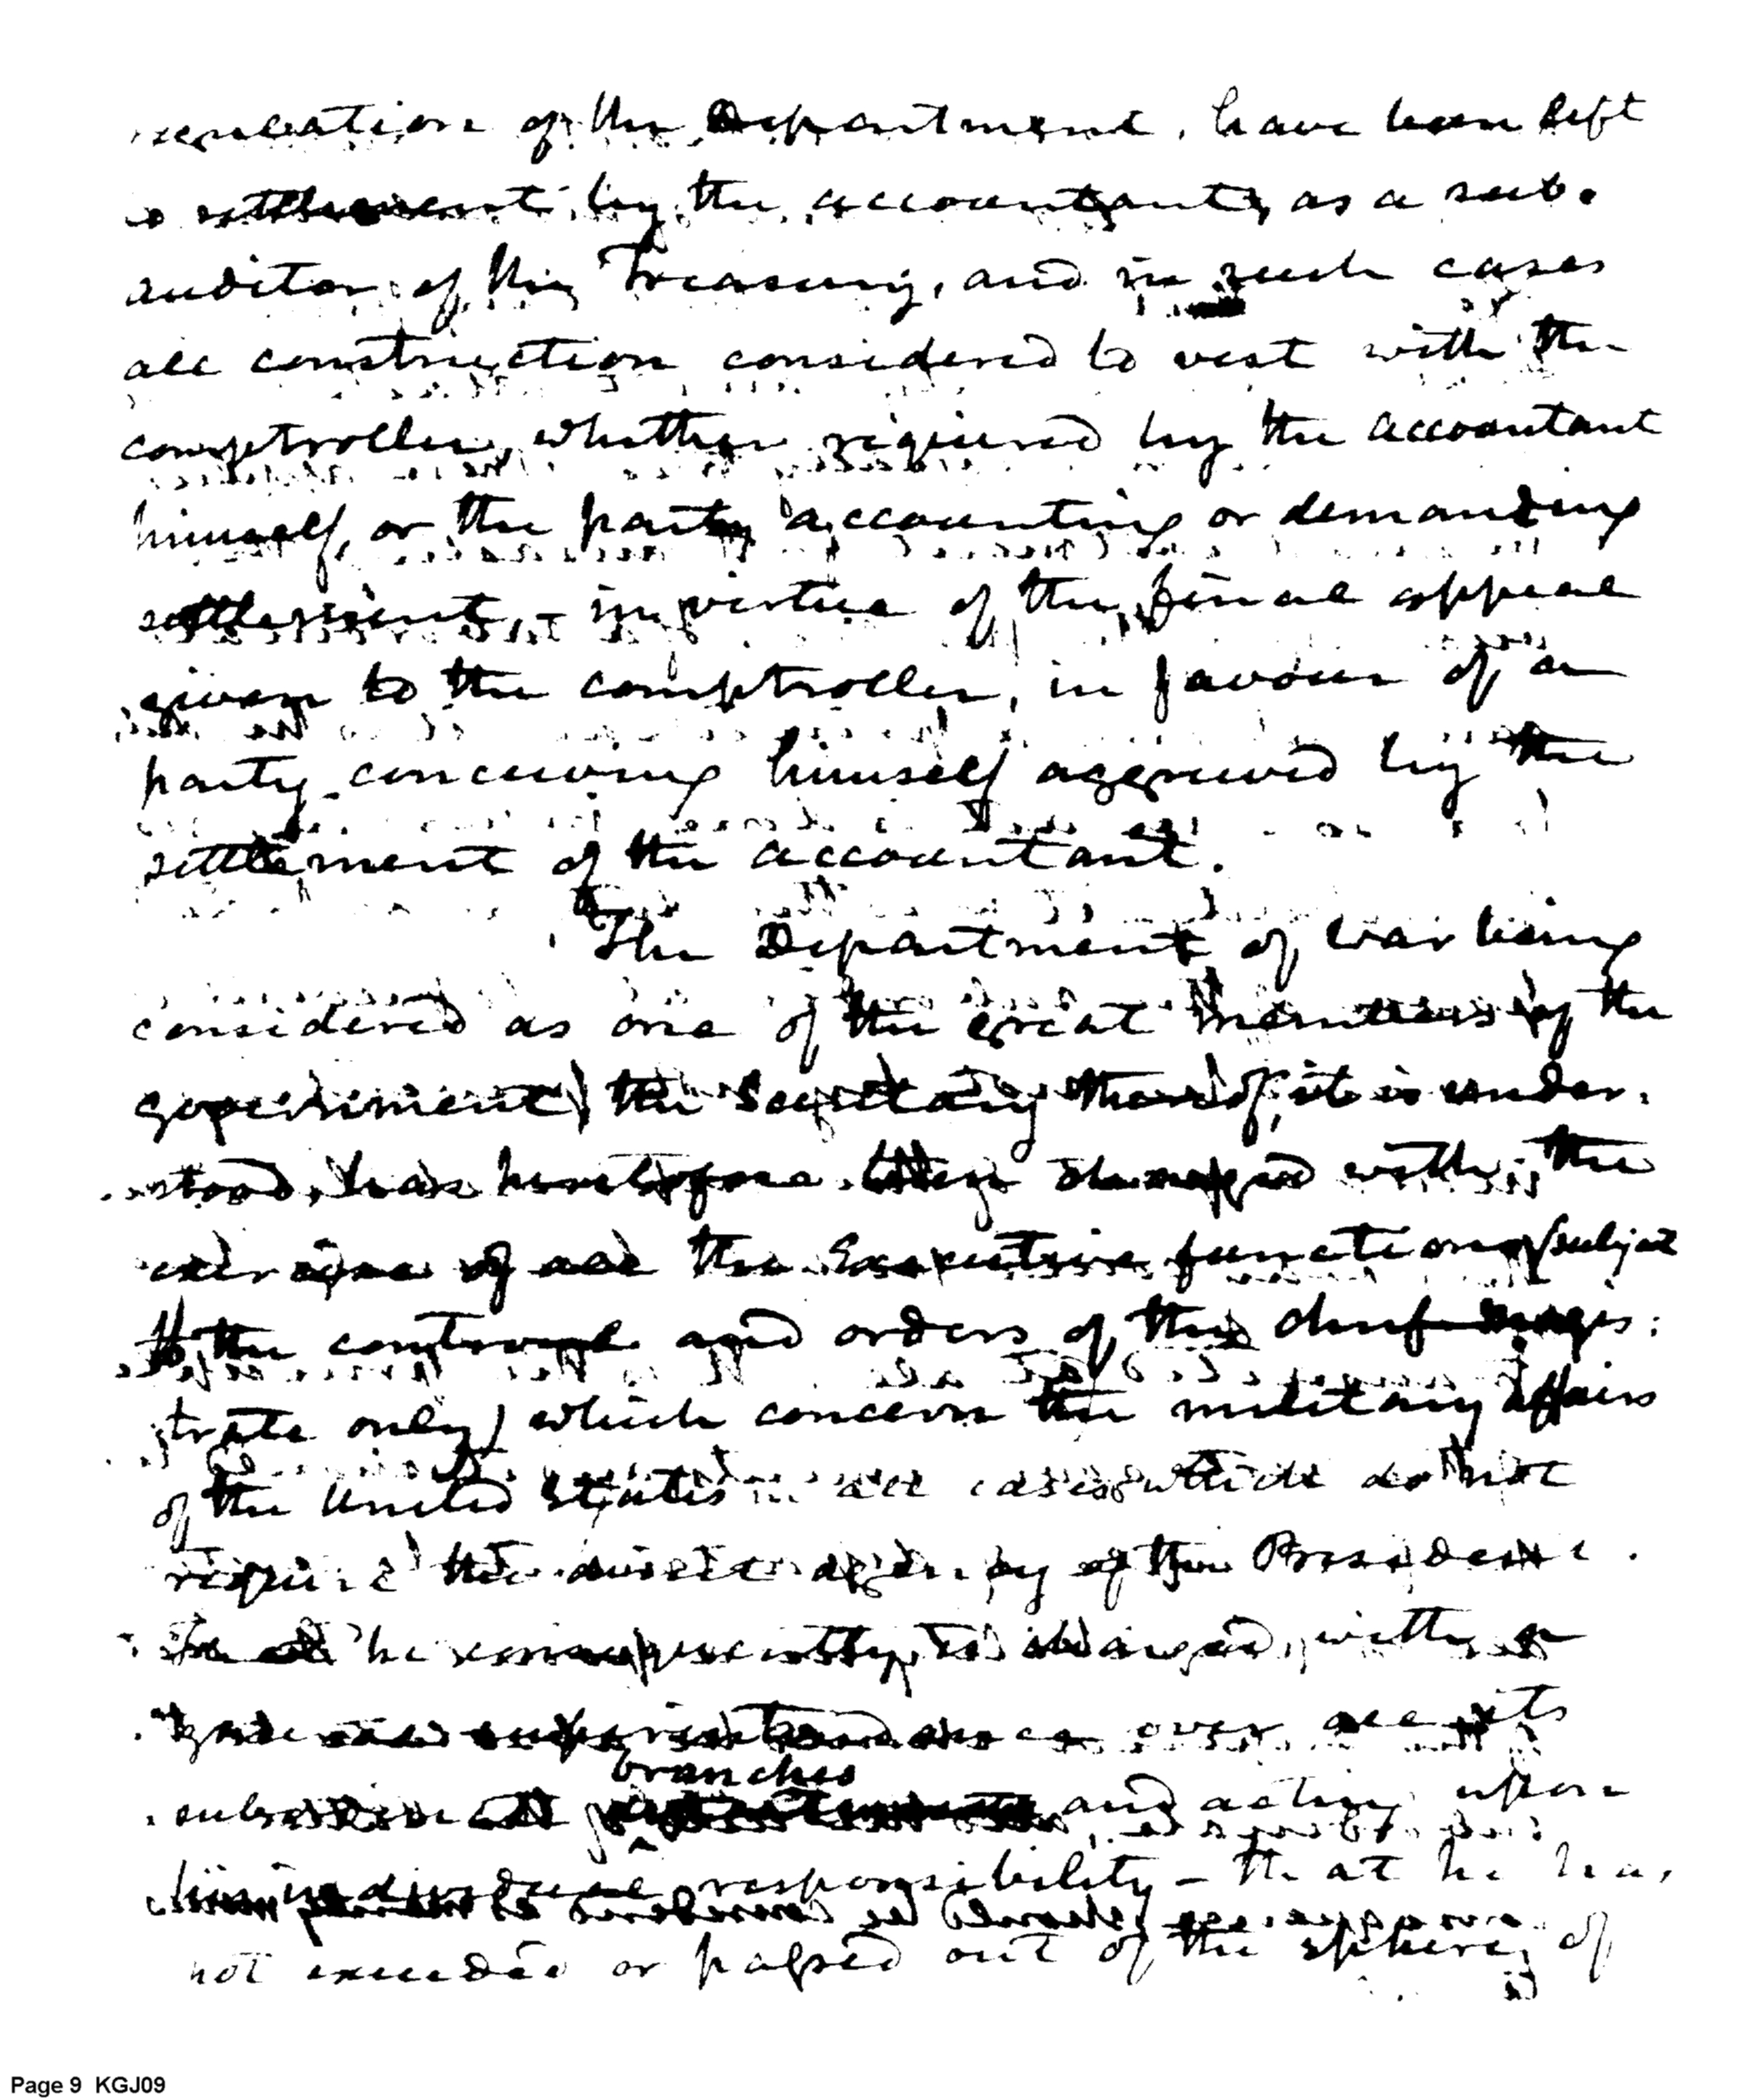 of the Department, have been left
to settlement by the accountant, as a sub-
auditor of the Treasury, and in such cases
all construction considered to vest with the
comptroller, whether required by the accountant
himself, or the party accounting or demanding
settlement, - in virtue of the final appeal
given to the comptroller, in favour of a
party conceiving himself aggrieved by the
settlement of the accountant.
The Department of War being
considered as one of the great members of the
government, the Secretary thereof, it is under-
stood, has heretofore been charged with the
exercise of all the Executive functions (subject
to the controul and orders of the chief magis:
trate only) which concern the military affairs
of the United States in all cases which do not
require the direct agency of the President.
he consequently is charged, with a
general superintendance over all its
subordinate branches and acting upon
his individual responsibility - that he has
not exceeded or passed out of the sphere of
Page 9 KGJ09